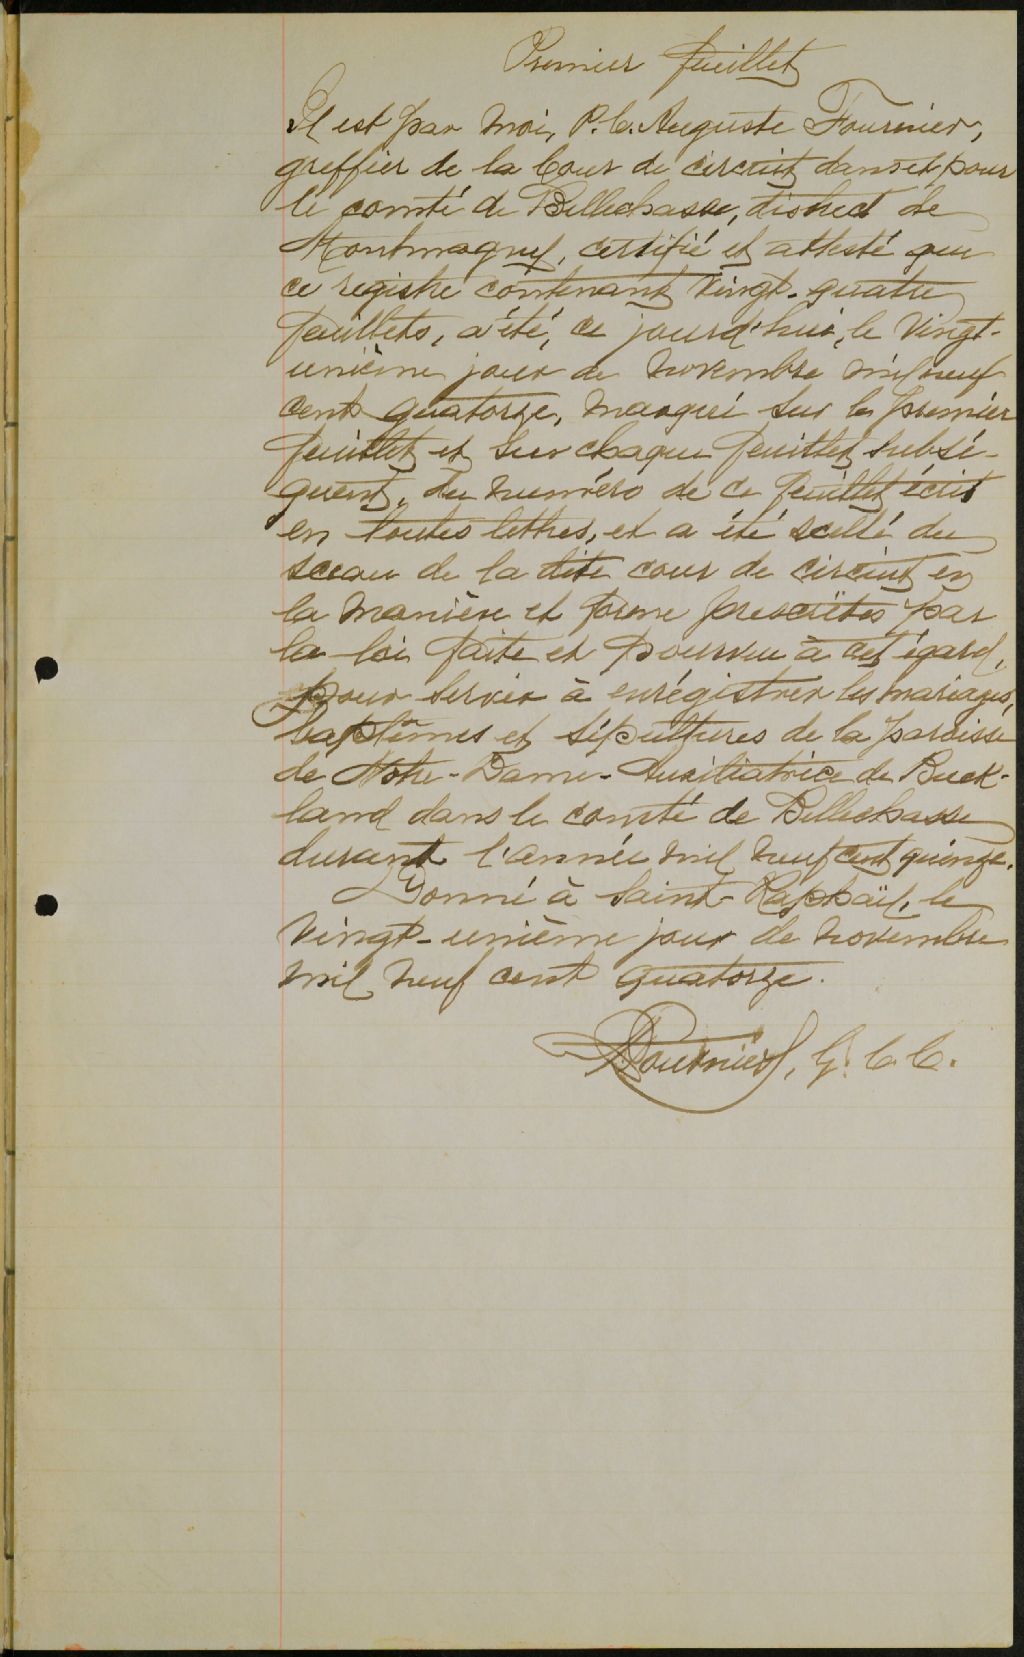 Premier feuillet
Il est par moi, P. C. Auguste Fournier,
greffier de la Cour de circuit dans et pour
le comté de Bellechasse, district de
Montmagny, certifié et attesté que
ce registre contenant vingt-quatre
feuillets, a été, ce jourd'hui, le vingt-
unième jour de novembre mil neuf
cent quatorze, marqué sur le premier
feuillet et sur chaque feuillet subsé-
quent, du numéro de ce feuillet écrit
en toutes lettres, et a été scellé du
sceau de la dite cour de circuit en
la manière et forme prescrites par
la loi faite et pourvue à cet égard,
pour servir à enrégistrer les mariages,
baptêmes et sépultures de la paroisse
de Notre-Dame-Auxiliatrice de Buck-
land dans le comté de Bellechasse
durant l'année mil neuf cent quinze.
Donné à Saint-Raphaël, le
vingt-unième jour de novembre
mil neuf cent quatorze.
Fournier, G. C. C.